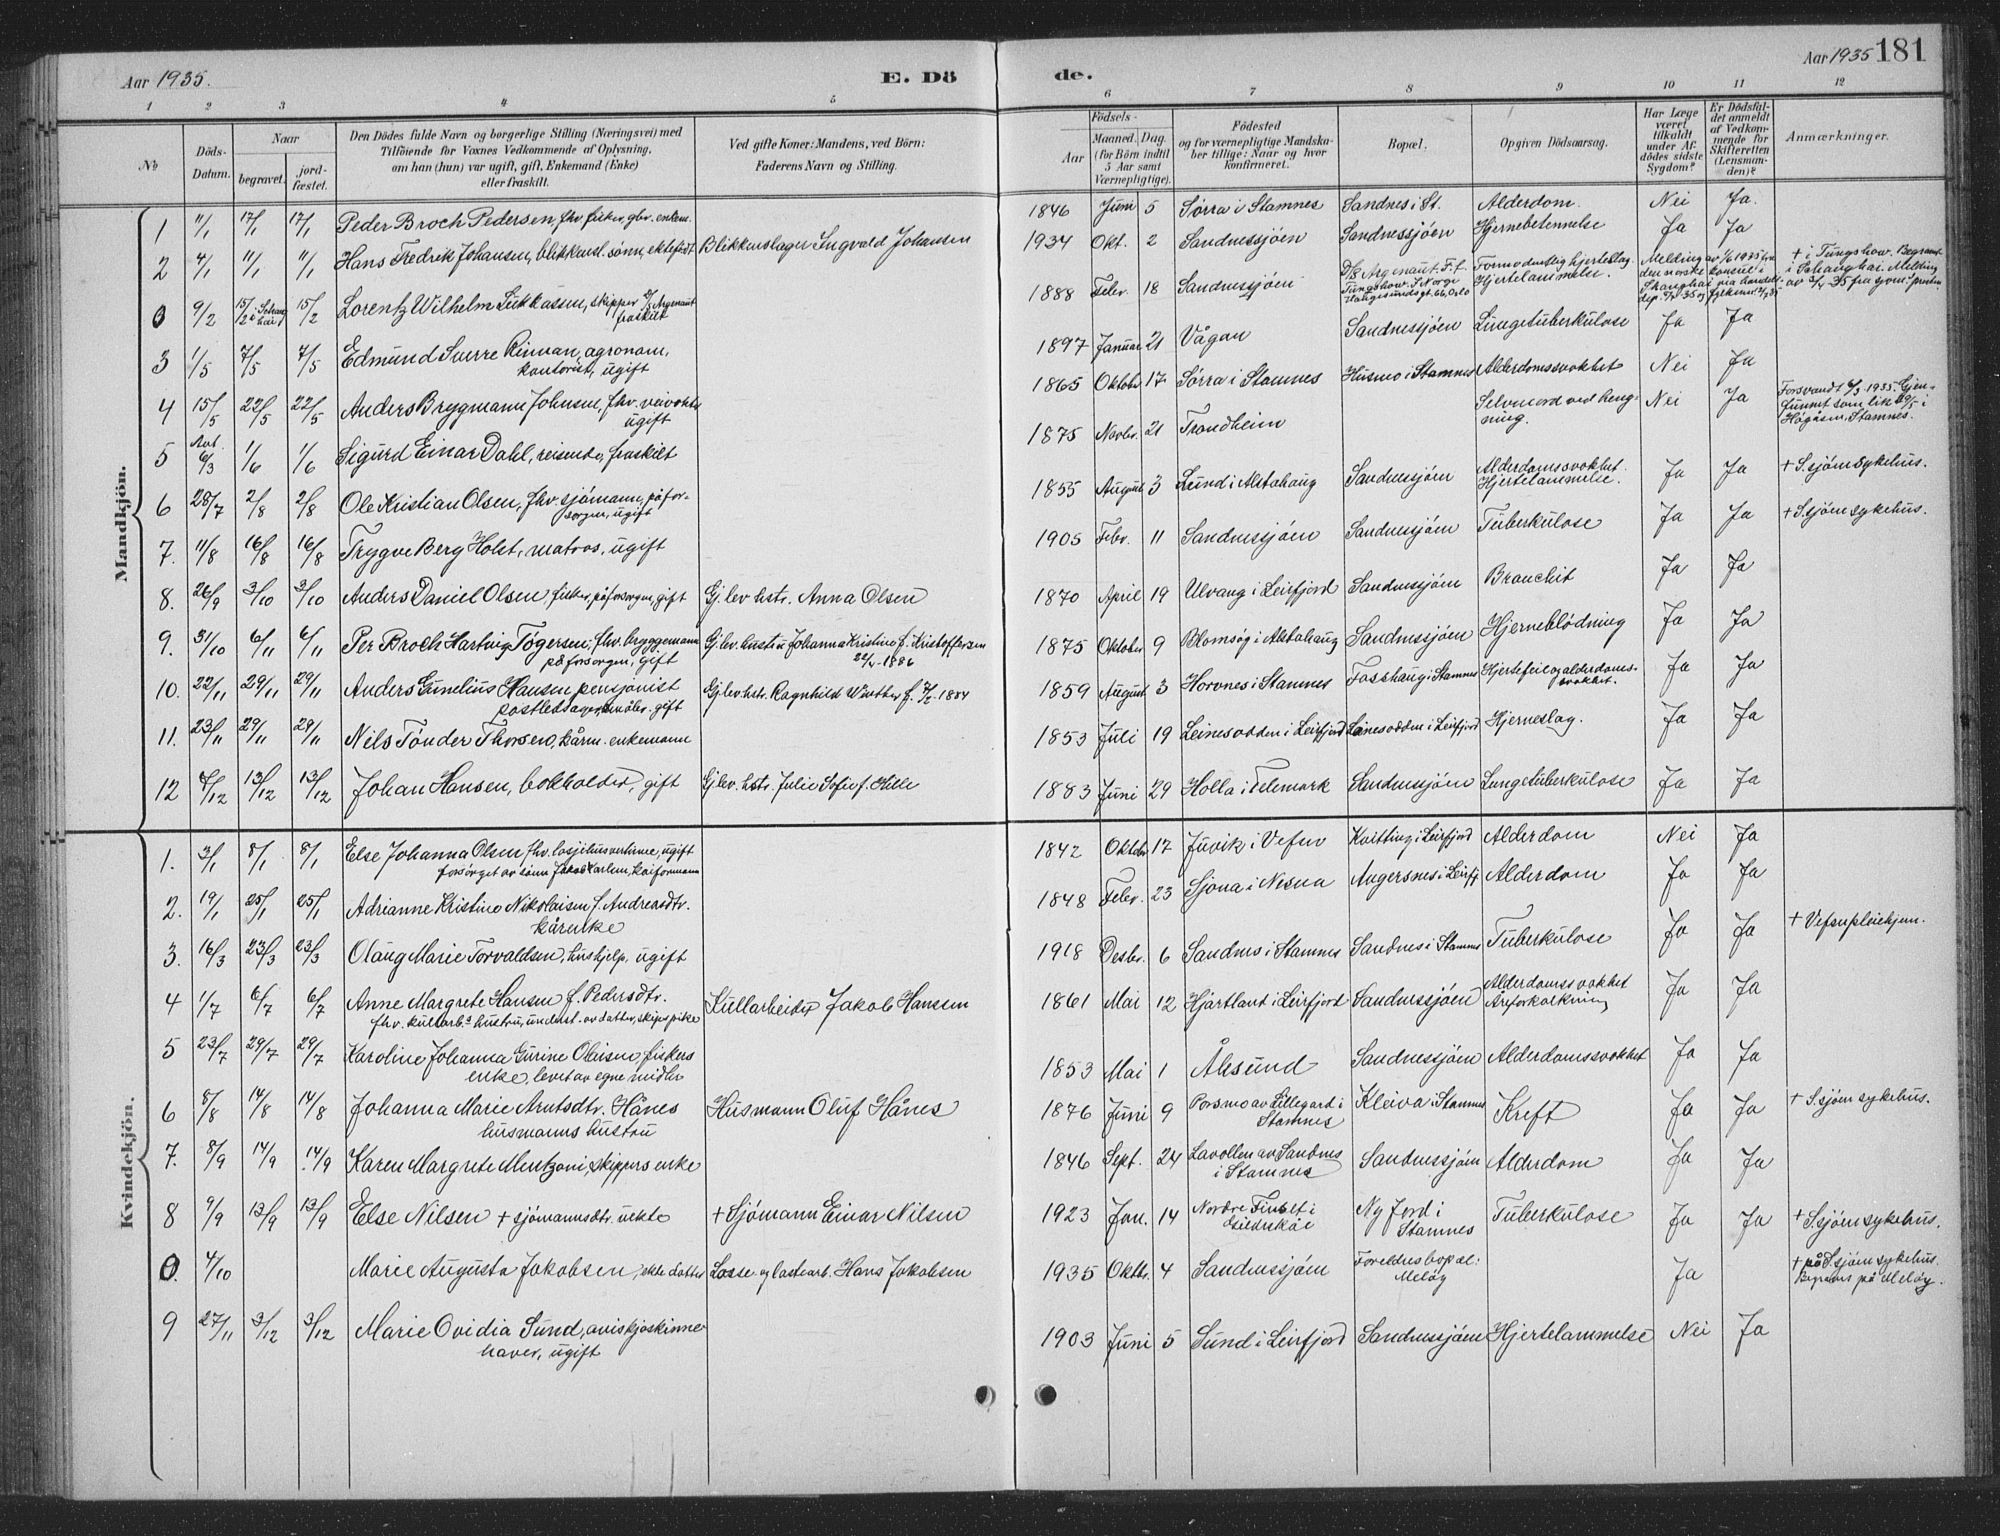 Aar 1935.
E. Dö
de.
Aar 1935 181
1 2 3 4 5 6 7 8 9 10 11 12
No
Döds-Datum.
Naar
begravet.
jord-fæstet.
Den Dödes fulde Navn og borgerlige Stilling (Næringsvei) med
Tilföiende för Voxnes Vedkommende af Oplysning,
om han (hun) var ugift, gift, Enkemand (Enke)
eller fraskilt.
Ved gifte Koner: Mandens, ved Börn:
Faderens Navn og Stilling.
Födsels-
Aar
Maaned. Dag.
(for Börn indtil
5 Aar samt
Værnepligtige).
Födested
og for værnepligtige Mandska-
ber tillige: Naar og hvor
konfirmeret.
Bopæl.
Opgiven Dödsaarsag.
Har Læge
været
tilkaldt
under Af-
dödes sidste
Sygdom?
Er Dödsfal-
det anmeldt
af Vedkom-
mende for
Skifteretten
(Lensman-
den)?
Anmærkninger.
Mandkjön.
1 11/1 17/1 17/1 Peder Broch Pedersen, fhv. fisker, gbr. enkem. 1846 Juni 5 Sörra i Stamnes Sandnes i St. Alderdom. Nei Ja.
2 4/1 11/1 11/1 Hans Fredrik Johansen, blikkensl. sönn, ektefödt Blikkenslager Ingvald Johansen 1934 Okt. 2 Sandnessjöen Sandnessjöen Hjernebetennelse Ja Ja
0 9/2 15/2 i Schanghai 15/2 Lorentz Wilhelm Lukkassen, skipper D/S Argenaut
fraskilt 1888 Febr. 18 Sandnessjöen D/S Argenaut. F. f. Tungshow. I Norge Haugesundsgt. 66, Oslo Formodentlig hjerteslag. Hjertelammelse. + i Tungshow. Begravet i Schanghai. Melding
3 1/5 7/5 7/5 Edmund Sverre Rinnan, agronom,
kontorist, ugift 1897 Januar 21 Vågan Sandnessjöen Lungetuberkulose Ja Ja
4 15/5 22/5 22/5 Anders Bryggmann Johnsen, fhv. veivokter
ugift 1865 Oktober 17 Sörra i Stamnes Husmo i Stamnes Alderdomssvakhet Nei Ja
5 Ant. 6/3 1/6 1/6 Sigurd Einar Dahl, reisende, fraskilt 1875 Novbr. 21 Trondheim Selvmord ved heng-
ning. Nei Ja Forsvandt 6/3 1935. Gjen-
funnet som lik 29/5 i
Högåsen, Stamnes.
6 28/7 2/8 2/8 Ole Kristian Olsen, fhv. sjömann, på for-
sorgen, ugift 1855 August 3 Lund i Alstahaug Sandnessjöen Alderdomssvakhet.
Hjertelammelse. Ja Ja + S.sjöen sykehus.
7. 11/8 16/8 16/8 Trygve Berg Holst, matros, ugift 1905 Febr. 11 Sandnessjöen Sandnessjöen Tuberkulose Ja Ja + S.sjöen sykehus.
8. 26/9 3/10 3/10 Anders Daniel Olsen, fisker, på forsorgen, gift Gj.lev. hstr. Anna Olsen 1870 April 19 Ulvang i Leirfjord Sandnessjöen Bronchit Ja Ja
9. 31/10 6/11 6/11 Per Broch Harting Tögersen, fhv. bryggemann
på forsorgen, gift Gj.lev. hustru Johanna Kristine f. Kristoffersen
22/1-1886 1875 Oktober 9 Blomsög i Alstahaug Sandnessjöen Hjerneblödning Ja Ja
10. 22/11 29/11 29/11 Anders Gunelius Hansen pensjonist
gift Gj.lev. hstr. Ragnhild Winther f. 1859 August 3 Horvnes i Stamnes Fosshaug i Stamnes Hjertefeil og alderdoms-
svakhet. Ja Ja
11. 23/11 29/11 29/11 Nils Tönder Thorsen, kårm. enkemann 1853 Juli 19 Leinesodden i Leirfjord Leinesodden i Leirfjord Hjerneslag. Ja Ja
12 6/12 13/12 13/12 Johan Hansen, bokholder, gift Gj.lev. hstr. Julie Sofie f. Hille 1883 Juni 29 Holla i Telemark Sandnessjöen Lungetuberkulose Ja Ja
Kvindekjön.
1. 3/1 8/1 8/1 Else Johanna Olsen fhv. losjihusvertinne, ugift
forsörget av sönn Jakob Karlsen, kaiformann 1842 Oktober 17 Juvik i Vefsn Kvitting i Leirfjord Alderdom Nei Ja
2. 19/1 25/1 25/1 Adrianne Kristine Nikolaisen f. Andreasdtr.
kårenke 1848 Febr. 23 Sjona i Nesna Angersnes i Leirfj. Alderdom Ja Ja
3. 16/3 23/3 23/3 Olaug Marie Torvaldsen, hushjelp, ugift 1918 Desbr. 6 Sandnes i Stamnes Sandnes i Stamnes Tuberkulose Ja Ja + Vefsn pleiehjem.
4 1/7 6/7 6/7 Anne Margrete Hansen f. Pedersdtr.
fhv. kullarb.s hustru, underst. av datter, skipspike Kullarbeider Jakob Hansen 1861 Mai 12 Hjartland i Leirfjord Sandnessjöen Alderdomssvakhet
Åreforkalkning Ja Ja
5 23/7 29/7 29/7 Karoline Johanna Gurine Olaisen, fiskers
enke, levet av egne midler 1853 Mai 1 Ålesund Sandnessjöen Alderdomssvakhet Ja Ja
6 8/8 14/8 14/8 Johanna Marie Arntsdtr. Hånes
husmanns hustru Husmann Oluf Hånes 1876 Juni 9 Porsmo av Lillegard i
Stamnes Kleiva i Stamnes Kreft Ja Ja + S.sjöen sykehus.
7. 8/9 14/9 14/9 Karen Margrete Mentzoni, skippers enke 1846 Sept. 24 Lavollen av Sandnes
i Stamnes Sandnessjöen Alderdom Ja Ja
8 7/9 13/9 13/9 Else Nilsen + sjömannsdtr. uekte + Sjömann Einar Nilsen 1923 Jan. 14 Nordre Finset i Ny fjord i
Stamnes Tuberkulose Ja Ja + S.sjöen sykehus.
0. 4/10 Marie Augusta Jakobsen, ekte datter Losse og lastearb. Hans Jakobsen 1935 Oktbr. 4 Sandnessjöen Foreldres bopæl:
Melöy Ja + på S.sjöen sykehus.
Begraves på Melöy.
9 27/11 3/12 3/12 Marie Ovidia Sund, aviskjoskinne-
haver, ugift 1903 Juni 5 Sund i Leirfjord Sandnessjöen Hjertelammelse Nei Ja